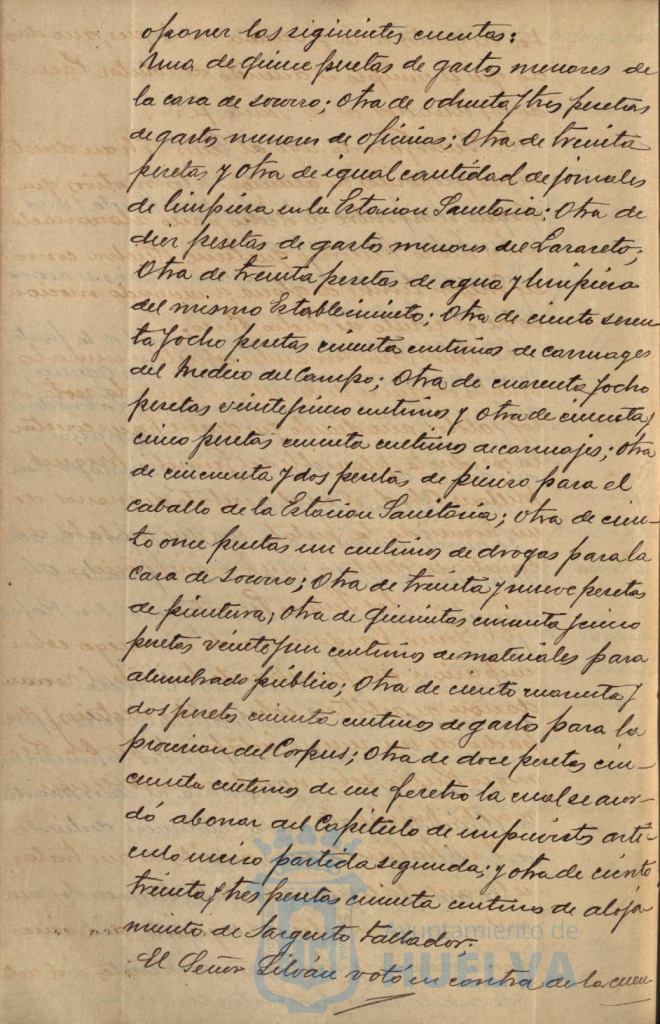 oponer las siguientes cuentas:
Una de quince pesetas de gastos menores de
la casa de socorro; Otra de ochenta y tres pesetas
de gastos menores de oficinas; Otra de treinta
pesetas y otra de igual cantidad de jornales
de limpieza en la Estacion Sanitaria; Otra de
diez pesetas de gastos menores del Lazareto;
Otra de treinta pesetas de agua y limpieza
del mismo Establecimiento; Otra de ciento seten
ta y ocho pesetas cincuenta centimos de carruages
del Medico del Campo; Otra de cuarenta y ocho
pesetas veinte y cinco centimos y Otra de cincuenta y
cinco pesetas cincuenta centimos de carruajes; Otra
de cincuenta y dos pesetas de pienso para el
caballo de la Estacion Sanitaria; Otra de cien-
to once pesetas un centimos de drogas para la
casa de Socorro; Otra de treinta y nueve pesetas
de pintura; Otra de quinientas cincuenta y cinco
pesetas veinte y un centimos de materiales para
alumbrado público; Otra de ciento cuarenta y
dos pesetas cincuenta centimos de gastos para la
procesion del Corpus; Otra de doce pesetas cin-
cuenta centimos de un feretro la cual se acor-
dó abonar del Capitulo de imprevistos arti-
culo unico partida segunda; y otra de ciento
treinta y tres pesetas cincuenta centimos de aloja
miento de Sargento tallador.
El Señor Silván votó en contra de la cuen
Ayuntamiento de
HUELVA